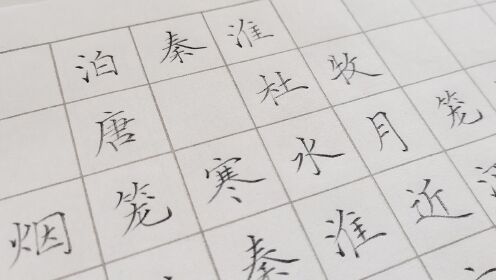 泊秦淮
唐 杜牧
烟笼寒水月笼
秦淮近